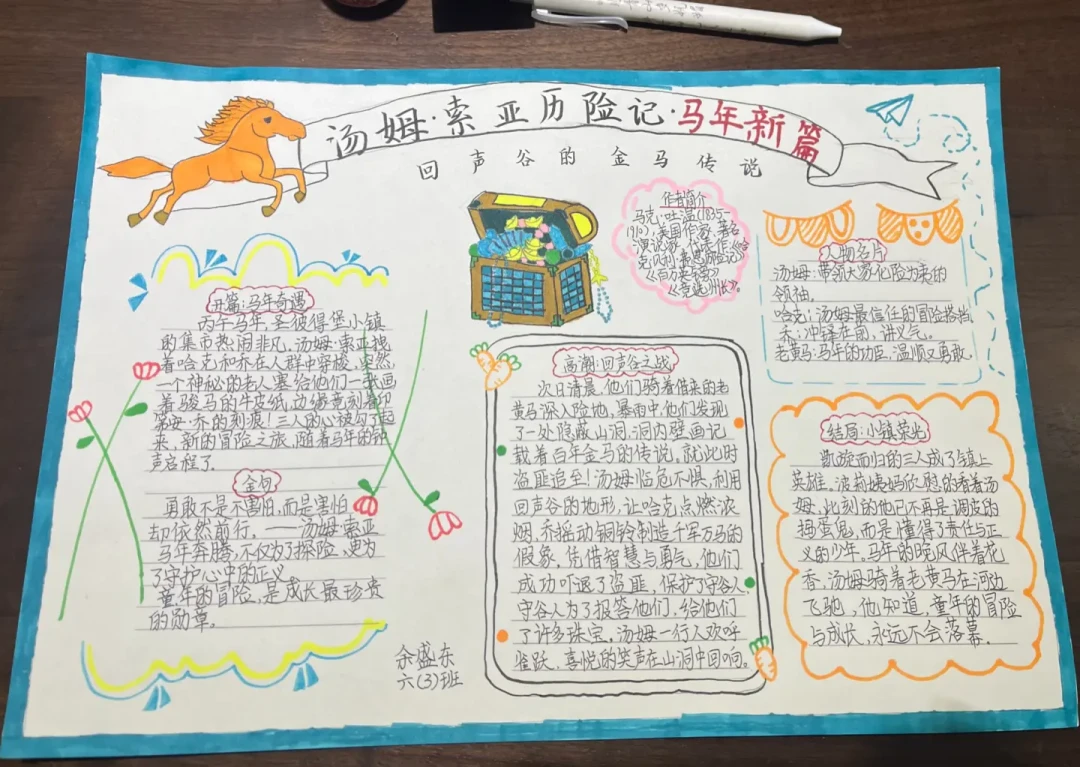 汤姆·索亚历险记·马年新篇
回声谷的金马传说
开篇:马年奇遇
丙午马年,圣彼得堡小镇
的集市热闹非凡。汤姆·索亚拽
着哈克和乔在人群中穿梭,突然,
一个神秘的老人塞给他们一张画
着骏马的牛皮纸,边缘竟刻着印
第安·乔的刻痕!三人的心被勾了起
来,新的冒险之旅,随着马年的钟
声启程了.
金句
勇敢不是不害怕,而是害怕
却依然前行。——汤姆·索亚
马年奔腾,不仅为了探险,更为
了守护心中的正义
童年的冒险,是成长最珍贵
的勋章。
作者简介
马克·吐温(1835-
1910),美国作家,著名
演说家,代表作《哈
克贝利·费恩历险记》
《百万英镑》
《竞选州长》。
高潮:回声谷之战
次日清晨,他们骑着借来的老
黄马深入险地,暴雨中,他们发现
了一处隐蔽山洞,洞内壁画记
载着百年金马的传说,就此时
盗匪追至!汤姆临危不惧,利用
回声谷的地形,让哈克点燃浓
烟,乔摇动铜铃制造千军万马的
假象,凭借智慧与勇气,他们
成功吓退了盗匪,保护了守谷人,
守谷人为了报答他们,给他们
了许多珠宝。汤姆一行人欢呼
雀跃,喜悦的笑声在山洞中回响。
人物名片
汤姆:带领大家化险为夷的
领袖。
哈克:汤姆最信任的冒险搭档
乔:冲锋在前,讲义气。
老黄马:马年的功臣,温顺又勇敢.
结局:小镇荣光
凯旋而归的三人成了镇上
英雄,波莉姨妈欣慰的看着汤
姆,此刻的他已不再是调皮的
捣蛋鬼,而是懂得了责任与正
义的少年。马年的晚风伴着花
香,汤姆骑着老黄马在河边
飞驰,他知道,童年的冒险
与成长,永远不会落幕.
余盛东
六(3)班